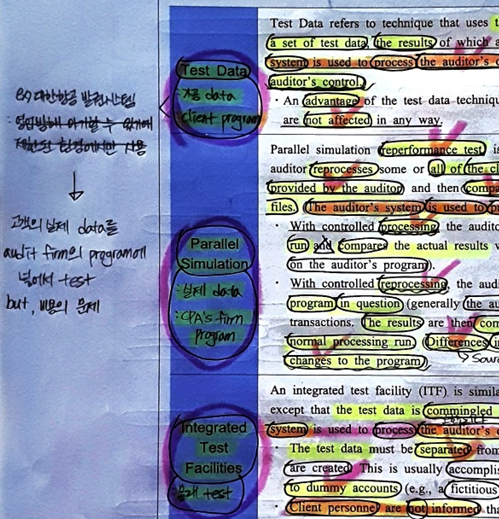 ex) 대한항공 발권시스템
: 영업방해 야기할 수 있기에
제한된 환경에서만 사용
↓
고객의 실제 data를
audit firm의 program에
넣어서 test
but, 비용의 문제
Test Data
가공 data
client program
Parallel
Simulation
·실제 data
·CPA's firm
Program
Integrated
Test
Facilities
test
Test Data refers to technique that uses
a set of test data, the results of which a
system is used to process the auditor's
auditor's control.
· An advantage of the test data techniq
are not affected in any way.
Parallel simulation (reperformance test) is
auditor reprocesses some or all of the cl
provided by the auditor and then compa
files. The auditor's system is used to p
· With controlled processing, the audito
run and compares the actual results
on the auditor's program).
· With controlled reprocessing, the audit
program in question (generally the au
transactions. The results are then com
normal processing run. Differences in
changes to the program.
→ Sour
An integrated test facility (ITF) is simila
except that the test data is commingled
system is used to process the auditor's
· The test data must be separated from
are created. This is usually accomplis
to dummy accounts (e.g., a fictitious
· Client personnel are not informed tha